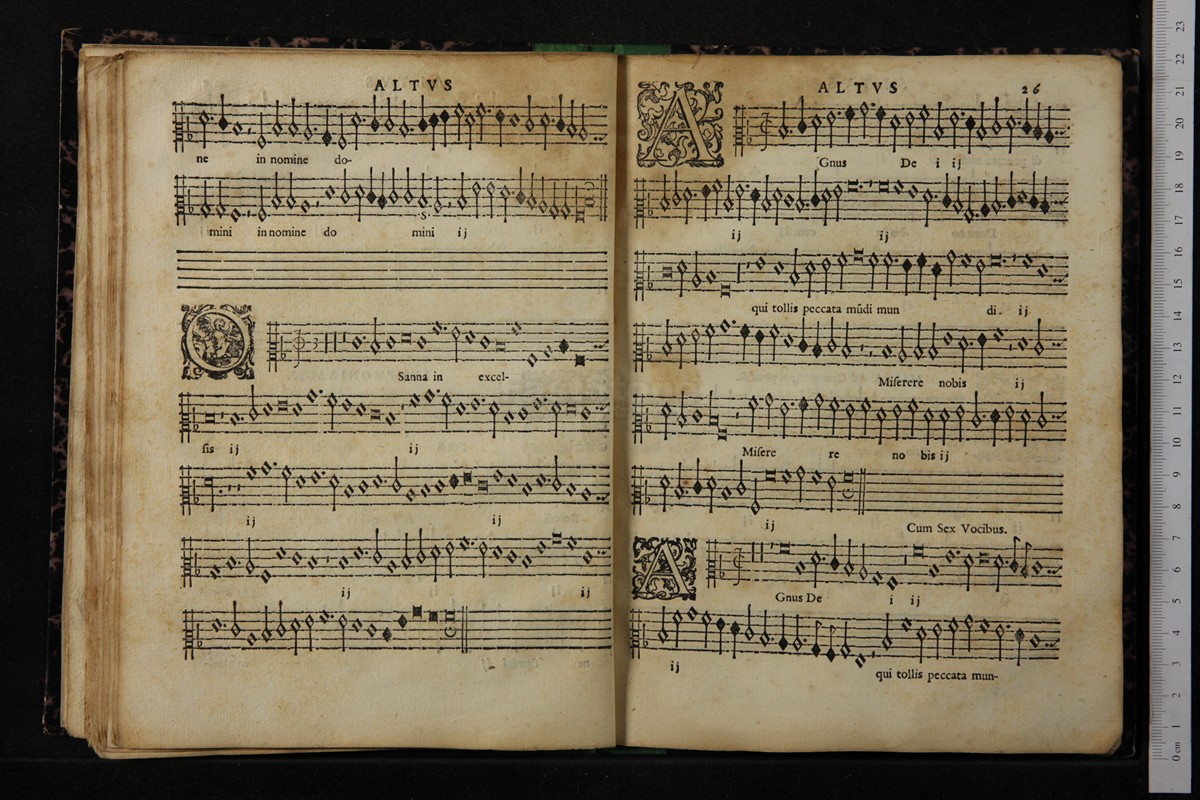 ALTVS
ne in nomine do-
mini in nomine do mini ij
O
Sanna in excel-
sis ij ij
ij ij
ij ij
ALTVS 26
A
Gnus De i ij
ij ij
qui tollis peccata mũdi mun di. ij
Miſerere nobis ij
Miſere re no bis ij
ij Cum Sex Vocibus.
A
Gnus De i ij
ij qui tollis peccata mun-
23
22
21
20
19
18
17
16
15
14
13
12
11
10
9
8
7
6
5
4
3
2
1
0 cm